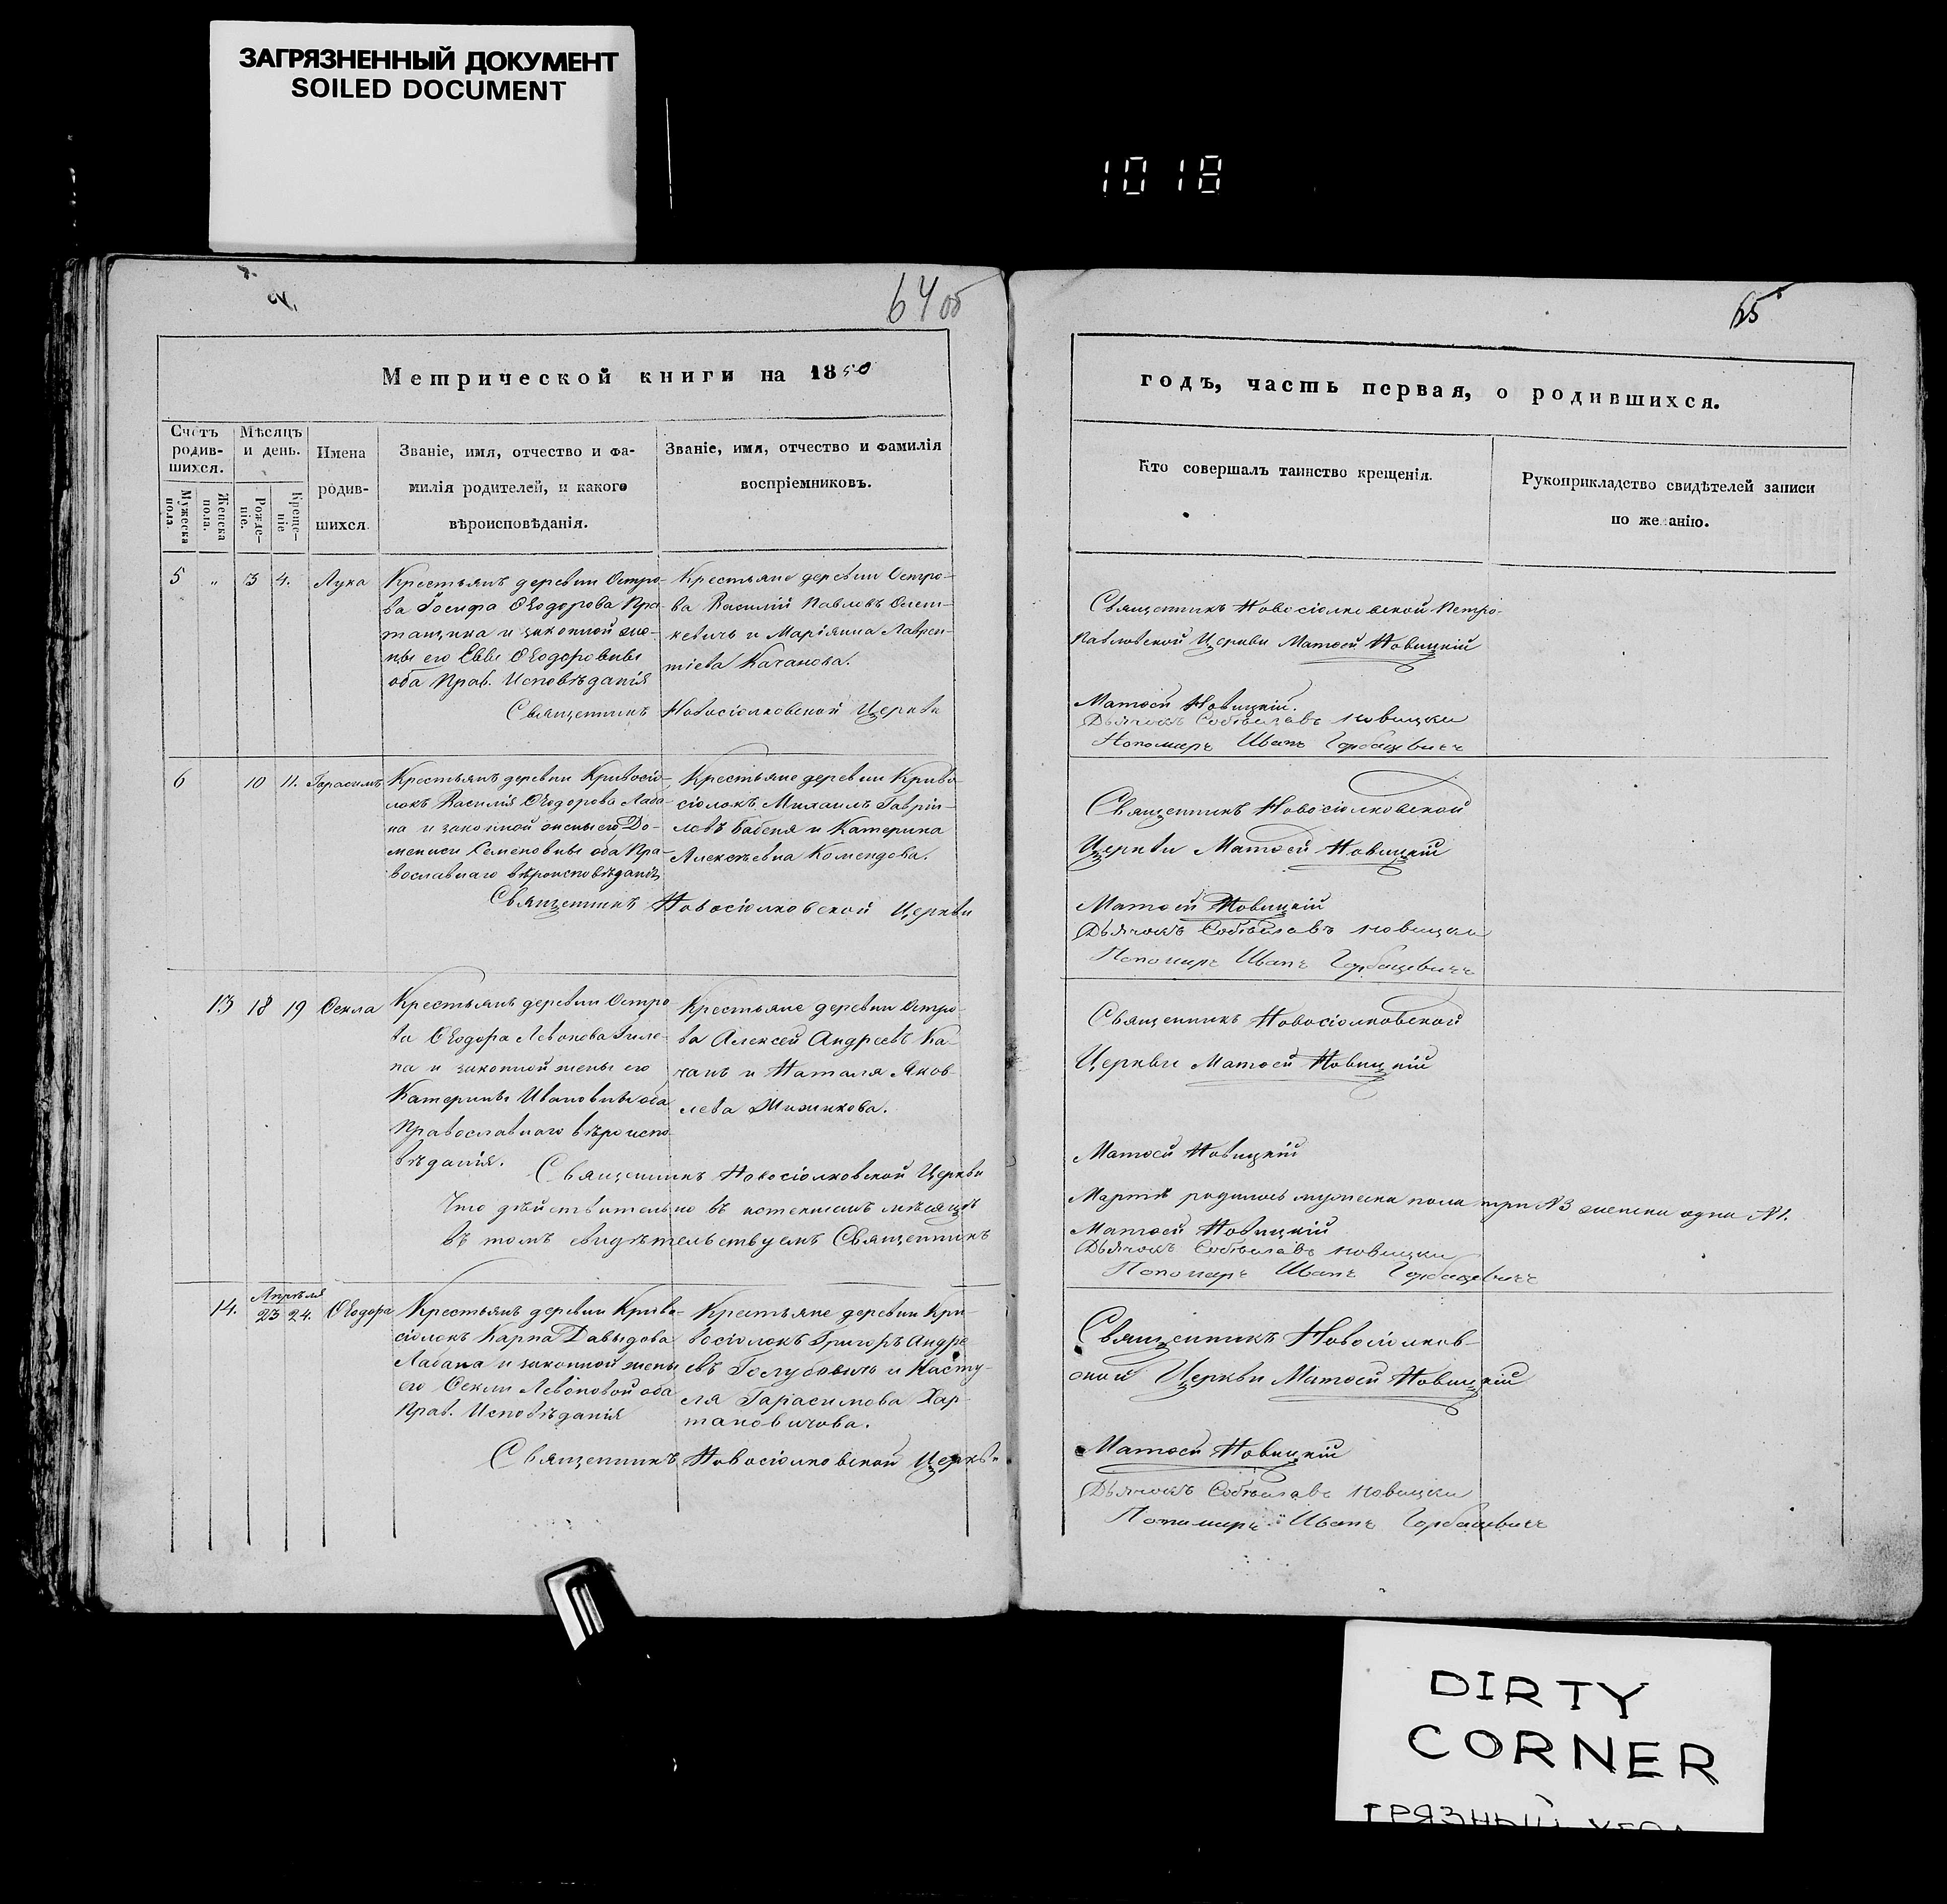 ЗАГРЯЗНЕННЫЙ ДОКУМЕНТ
SOILED DOCUMENT
1018
64 об
Метрической книги на 1850
Счетъ родив-шихся.
Мѣсяцъ и день.
Мужеска пола.
Женска пола.
Рожде-ніе.
Креще-ніе
Имена
родив-
шихся
Званіе, имя, отчество и фа-
милія родителей, и какого
вѣроисповѣданія.
Званіе, имя, отчество и фамилія
воспріемниковъ.
5 „ 3 4. Лука
Крестьянъ деревни Остро-
ва Іосифа Ѳеодорова Пра-
тащика и законной же-
ны его Еввы Ѳеодоровны
оба Прав. Исповѣданія
Крестьяне деревни Остро-
ва Василій Павловъ
кевичь и Маріянна Лаврен-
тіева Качанова.
Священникъ Новосіолковской Церкви
6 10 11. Гарасимъ
Крестьянъ деревни Кривосіо-
локъ Василія Ѳеодорова Лаба-
на и законной жены его До-
меникеи Семеновны оба Пра-
вославнаго вѣроисповѣданія
Крестьяне деревни Криво
сіолокъ Михаилъ Гавріи-
ловъ Бабеня и Катерина
Алексѣевна Комендова.
Священникъ Новосіолковской Церкви
13 18 19 Ѳекла
Крестьянъ деревни Остро-
ва Ѳеодора Левонова Гиле-
на и законной жены его
Катерины Ивановны оба
Православнаго вѣроиспо-
вѣданія.
Крестьяне деревни Остро-
ва Алексей Андреевъ Ка-
чанъ и Наталя Яков-
лева Жижикова.
Священникъ Новосіолковской Церкви
Что дѣйствительно въ истекшемъ мѣсяцѣ
въ томъ свидѣтельствуемъ Священникъ
14. Апрѣля 23 24. Ѳеодора
Крестьянъ деревни Криво-
сіолокъ Карпа Давыдова
Лабана и законной жены
его Ѳеклы Левоновой оба
Прав. Исповѣданія
Крестьяне деревни Кри-
восіолокъ Григоръ Андре
евъ Голубовичь и Насту-
ля Гарасимова Хар-
тановичова.
Священникъ Новосіолковской Церкви
65
годъ, часть первая, о родившихся.
Кто совершалъ таинство крещенія.
Рукоприкладство свидѣтелей записи
по желанію.
Священникъ Новосіолковской Петро-
Павловской Церкви Матѳей Новицкій
Матѳей Новицкій.
Дьячокъ Новицки
Пономарь Иванъ Горбацевичъ
Священникъ Новосіолковской
Церкви Матѳей Новицкій
Матѳей Новицкій
Дьячокъ Новицки
Пономарь Иванъ Горбацевичъ
Священникъ Новосіолковской
Церкви Матѳей Новицкій
Матѳей Новицкій
Мартѣ родилось мужеска пола три №3 женска одна №1.
Матѳей Новицкій
Дьячокъ Новицки
Пономарь Иванъ Горбацевичъ
Священникъ Новосіолков-
ской Церкви Матѳей Новицкій
Матѳей Новицкій
Дьячокъ Новицки
Пономарь Иванъ Горбацевичъ
DIRTY
CORNER
ГРЯЗНЫЙ УГОЛ